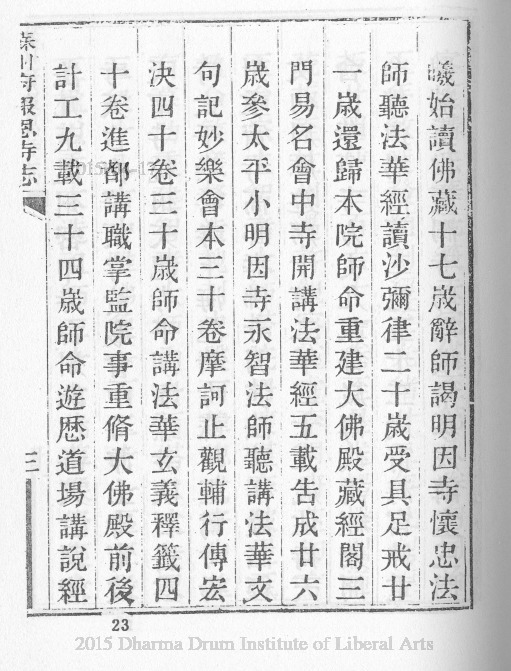 曦始讀佛藏十七歲辭師謁明因寺懷忠法
師聽法華經讀沙彌律二十歲受具足戒廿
一歲還歸本院師命重建大佛殿藏經閣三
門易名會中寺開講法華經五載告成廿六
歲參太平小明因寺永智法師聽講法華文
句記妙樂會本三十卷摩訶止觀輔行傳宏
決四十卷三十歲師命講法華玄義釋籤四
十卷進都講職掌監院事重脩大佛殿前後
計工九載三十四歲師命遊歷道場講說經
府報恩寺志
三
23
2015 Dharma Drum Institute of Liberal Arts